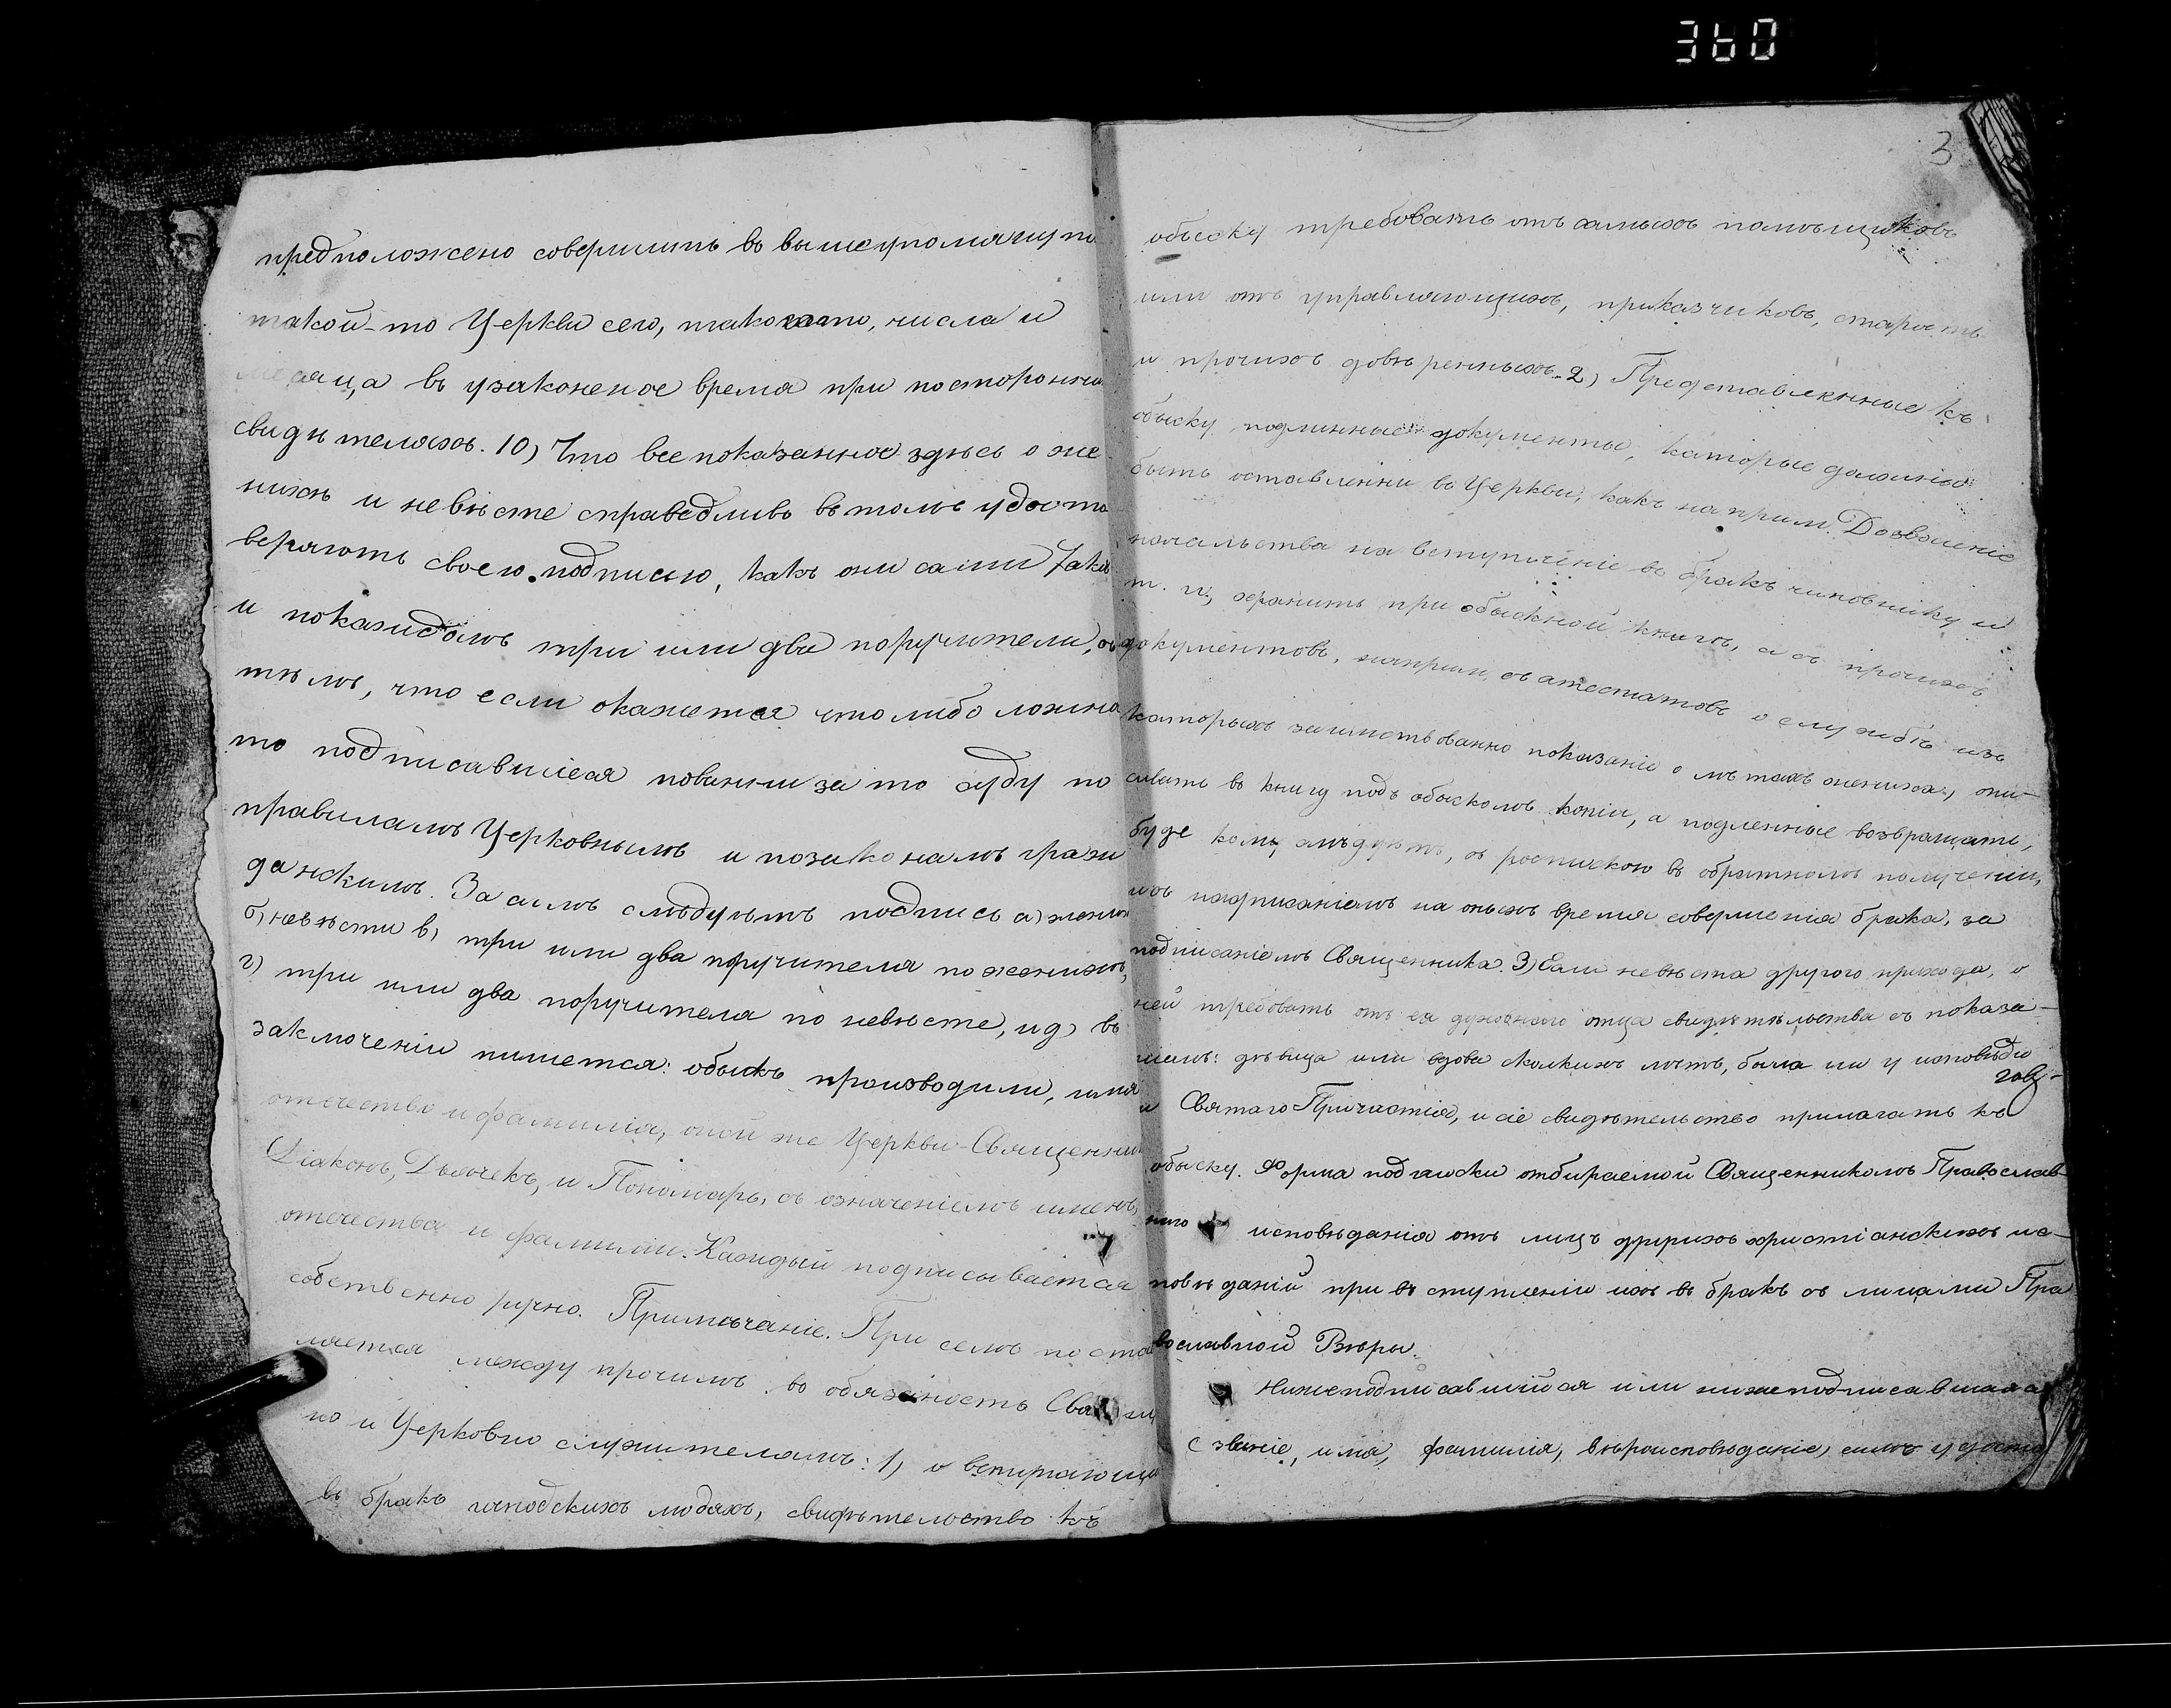 360
предположено совершить въ вышеупомянуто
такой-то Церкви сего, такогото, числа и
месяца въ узаконеное время при посторонни
свидѣтеляхъ. 10) Что все показанное здѣсь о же
нихѣ и невѣсте справедливо въ томъ удосто
веряютъ своею подписью, какъ они сами така
и покаждомъ три или два поручители, съ
тѣмъ, что если окажется что либо ложно
то подписавшіеся повинны за то суду по
правиламъ Церковнымъ и позаконамъ граж
данскимъ. За симъ слѣдуютъ подпись а) жениха
б) невѣсты в) три или два поручителя по женихѣ,
г) три или два поручителя по невѣсте, и д) въ
заключеніи пишется: обыскъ производили, имя
отечество и фамилія, оной же Церкви Священни
Діаконъ, Дьячекъ, и Пономарь, съ означеніемъ именъ,
отечества и фамиліи. Каждый подписывается
собственно ручно. Примѣчаніе. При семъ поста
вляется между прочимъ въ обязаность Свящ
но и Церковно служителямъ: 1) о вступающи
въ бракъ господскихъ людяхъ, свидѣтельство къ
3
обыску требовать отъ самыхъ помѣщиковъ
или отъ управляющихъ, приказчиковъ, старостъ
и прочихъ довѣренныхъ. 2) Представленные къ
обыску подлинные документы, которые должно
быть оставлены въ Церкви, какъ наприм. Дозволеніе
начальства на вступленіе въ бракъ чиновнику и
т. п., хранить при обыскной книгѣ, а съ прочихъ
документовъ, наприм. съ атестатовъ о службѣ изъ
которыхъ заимствованно показаніе о лѣтахъ жениха, спи-
сывать въ книгу подъ обыскомъ копіи, а подленные возвращать,
буде кому слѣдуетъ, съ роспискою въ обратномъ полученіи,
и съ надписаніемъ на оныхъ время совершенія брака, за
подписаніемъ Священника. 3) Если невѣста другого прихода, о
ней требовать отъ ея духовного отца свидѣтѣльства съ показа-
ніемъ: дѣвица или вдова сколкихъ лѣтъ, была ли у исповѣди
и Святаго Причастія, и сіе свидѣтельство прилагать къ
обыску. Форма подписки отбираемой Священникомъ Православ-
ного исповѣданія отъ лицъ другихъ христіанскихъ ис-
повѣданій при вступленіи ихъ въ бракъ съ лицами Пра
вославной Вѣры.
Нижеподписавшійся или нижеподписавшаяся
(званіе, имя, фамилія, вѣроисповѣданіе) симъ удосто